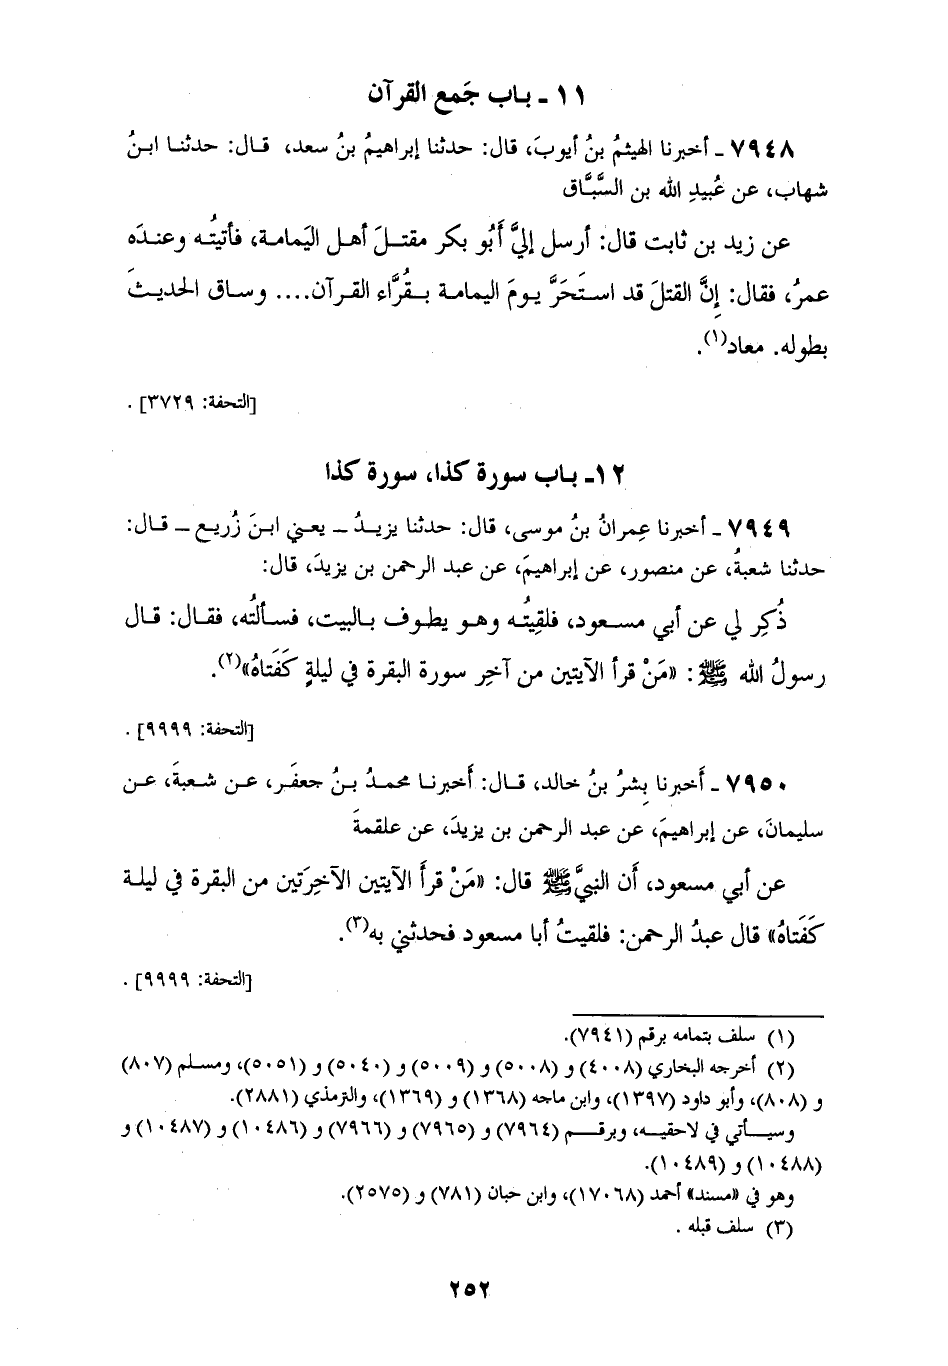 ١١ ـ باب جَمع القرآن
٧٩٤٨ ـ أخبرنا الهيثمُ بنُ أيوبَ، قال: حدثنا إبراهيمُ بنُ سعد، قال: حدثنا ابنُ
شهاب، عن عُبيدِ الله بن السَّبَّاق
عن زيد بن ثابت قال: أرسل إليَّ أَبُو بكر مقتلَ أهل اليَمامة، فأتيتُه وعندَه
عمرُ، فقال: إنَّ القتلَ قد استَحَرَّ يومَ اليمامة بقُرَّاء القرآن.... وساق الحديثَ
بطوله. معاد(١).
[التحفة: ٣٧٢٩] .
١٢ـ باب سورة كذا، سورة كذا
٧٩٤٩ ـ أخبرنا عِمرانُ بنُ موسى، قال: حدثنا يزيدُ ــ يعني ابنَ زُريع ــ قال:
حدثنا شعبةُ، عن منصور، عن إبراهيمَ، عن عبد الرحمن بن يزيدَ، قال:
ذُكِر لي عن أبي مسعود، فلقِيتُه وهو يطوف بالبيت، فسألتُه، فقال: قال
رسولُ الله ﷺ: «مَنْ قرأ الآيتين من آخِر سورة البقرة في ليلةٍ كَفَتاهُ»(٢).
[التحفة: ٩٩٩٩] .
٧٩٥٠ ـ أَخبرنا بِشرُ بنُ خالد، قال: أَخبرنا محمدُ بنُ جعفَر، عن شعبةَ، عن
سليمانَ، عن إبراهيمَ، عن عبد الرحمن بن يزيدَ، عن علقمةَ
عن أبي مسعود، أَن النبيَّ ﷺ قال: «مَنْ قرأَ الآيتين الآخِرَتين من البقرة في ليلة
كَفَتاهُ» قال عبدُ الرحمن: فلقيتُ أبا مسعود فحدثني به(٣).
[التحفة: ٩٩٩٩] .
(١) سلف بتمامه برقم (٧٩٤١).
(٢) أخرجه البخاري (٤٠٠٨) و (٥٠٠٨) و (٥٠٠٩) و (٥٠٤٠) و (٥٠٥١)، ومسلم (٨٠٧)
و (٨٠٨)، وأبو داود (١٣٩٧)، وابن ماجه (١٣٦٨) و (١٣٦٩)، والترمذي (٢٨٨١).
وسيأتي في لاحقيه، وبرقم (٧٩٦٤) و (٧٩٦٥) و (٧٩٦٦) و (١٠٤٨٦) و (١٠٤٨٧) و
(١٠٤٨٨) و (١٠٤٨٩).
وهو في «مسند» أحمد (١٧٠٦٨)، وابن حبان (٧٨١) و (٢٥٧٥).
(٣) سلف قبله .
٢٥٢